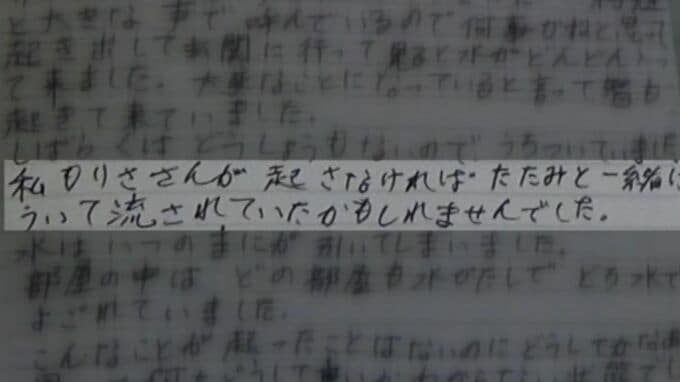 と大きな声で呼んでいるので何事かねと思って
起き出して玄関に行って見ると水がどんどん入っ
て来ました。大変なことになっていると言って皆も
起きて来ていました。
しばらくはどうしようもないのでうろついていました
私もりささんが起さなければたたみと一緒に
ういて流されていたかもしれませんでした。
水はいつのまにか引いてしまいました。
部屋の中はどの部屋も水がたしでどろ水で
よごれていました。
こんなことが起ったことはないのにどうしてかなあ